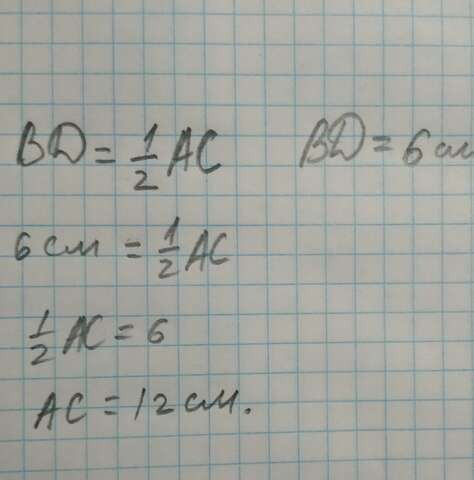 BD = 1/2 AC BD = 6 см
6 см = 1/2 AC
1/2 AC = 6
AC = 12 см.